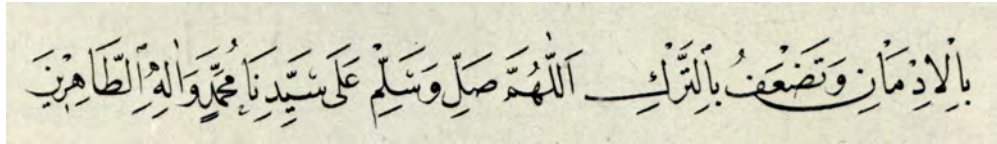 بِالْاِدْمَانِ وَتَضْعَفُ بِالتَّرْكِ اَللّٰهُمَّ صَلِّ وَسَلِّمْ عَلَى سَيِّدِنَا مُحَمَّدٍ وَاٰلِهِ الطَّاهِرِينَ